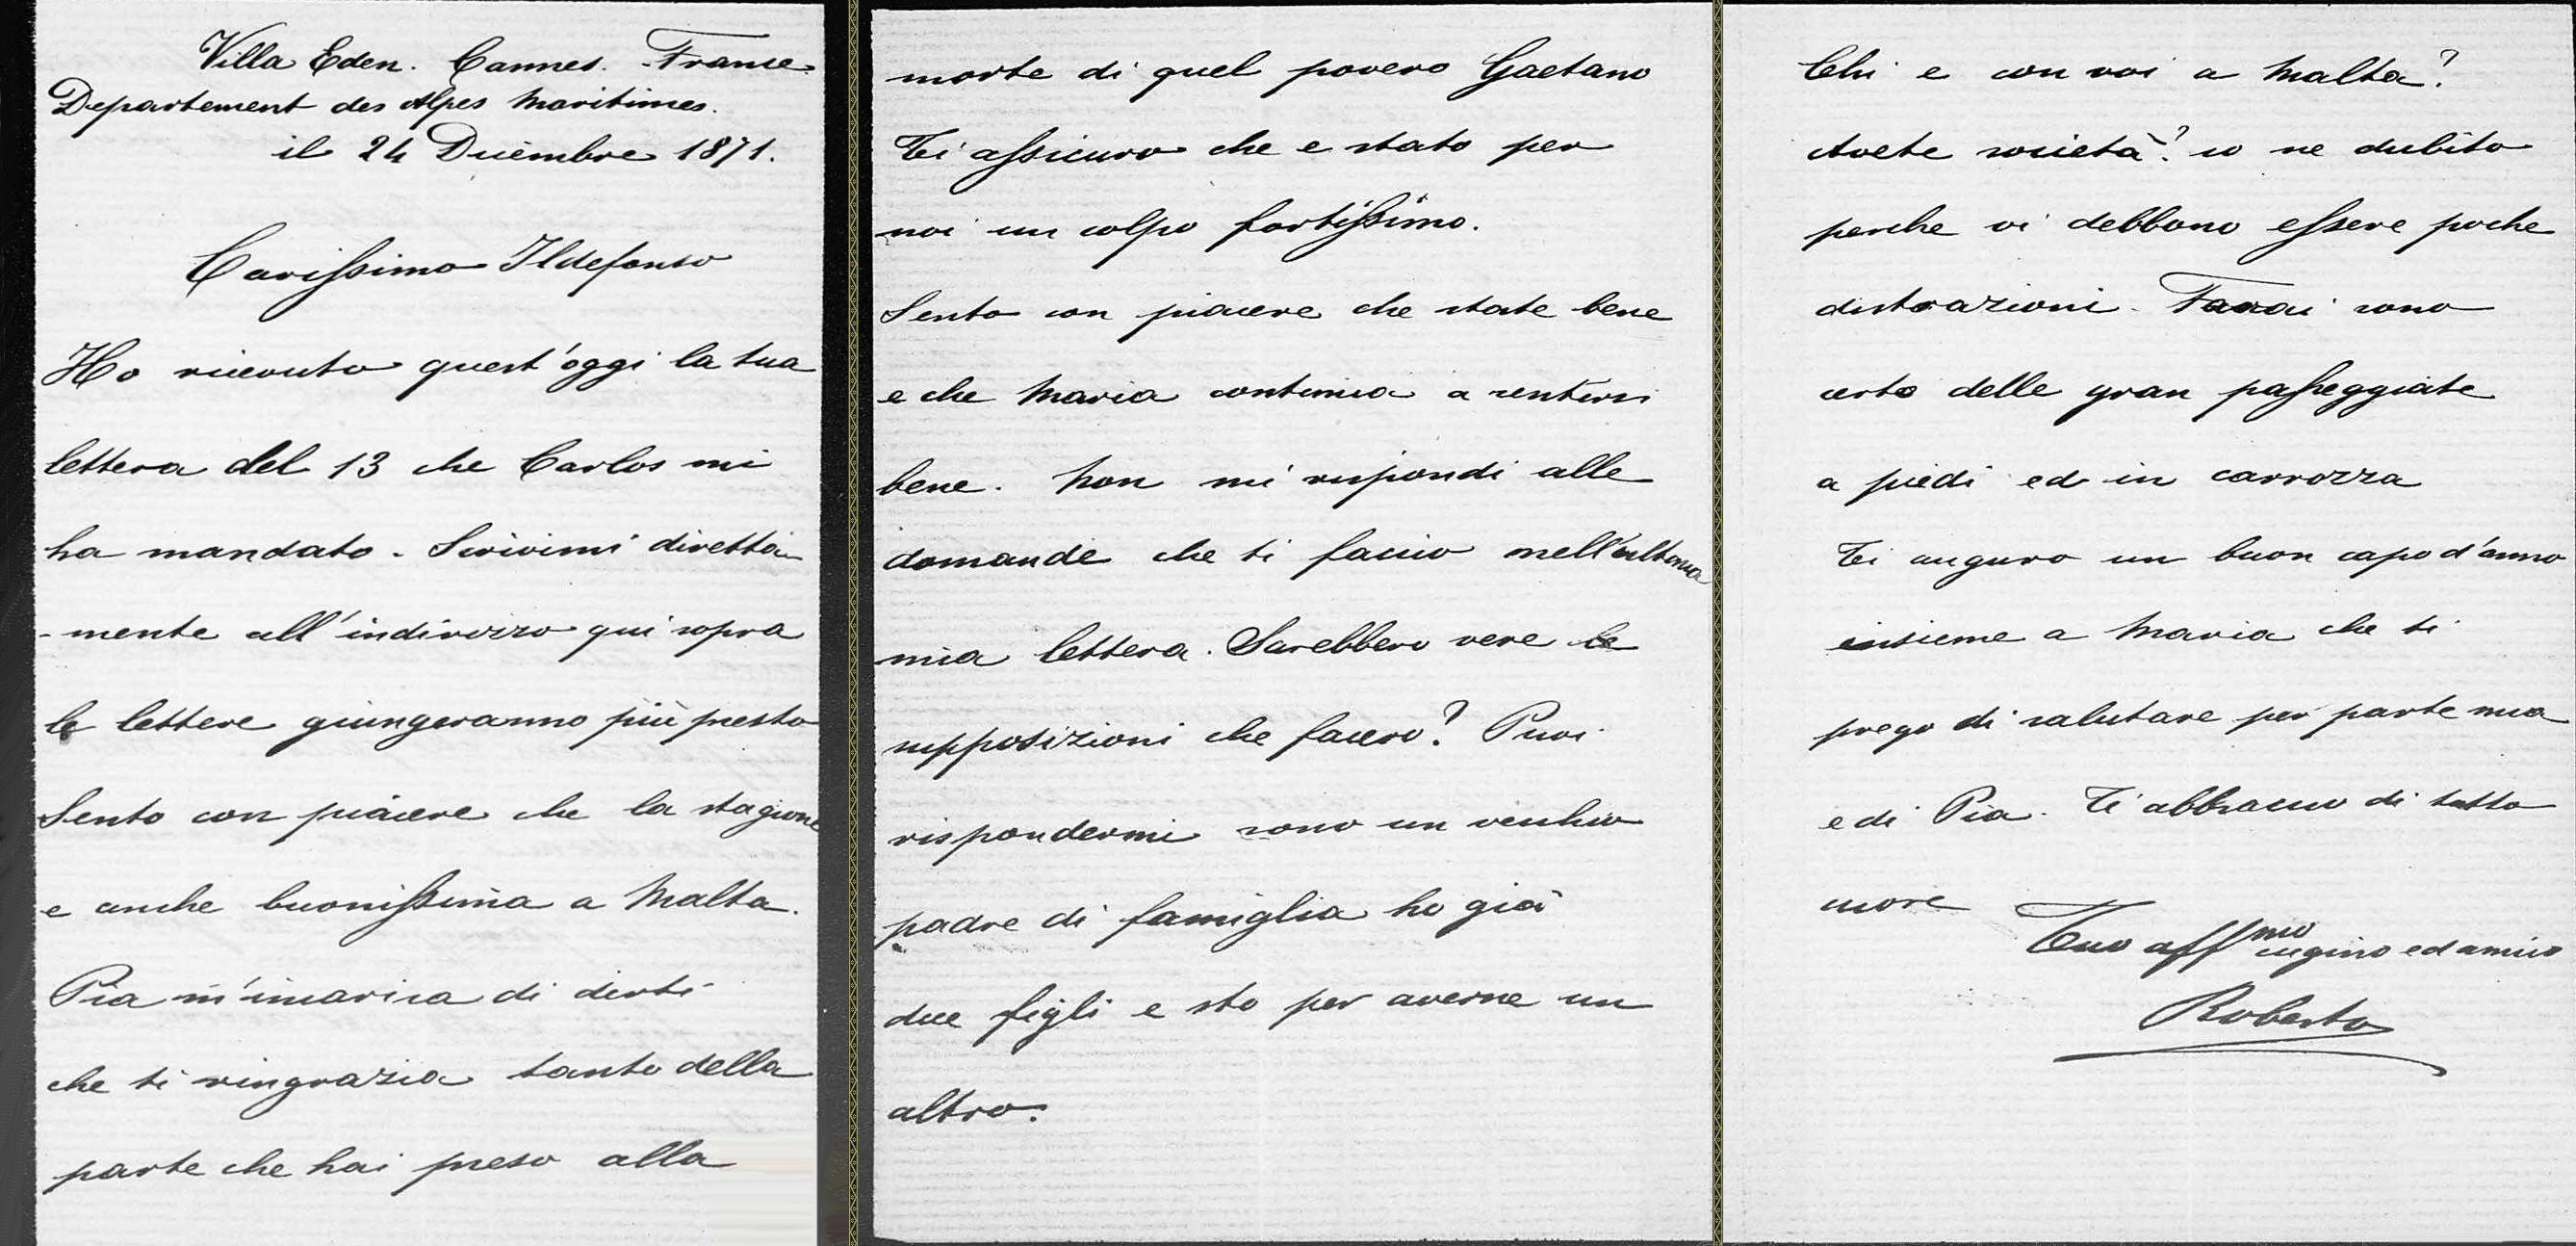 Villa Eden. Cannes. France.
Departement des Alpes Maritimes.
il 24 Dicembre 1871.
Carissimo Ildefonso
Ho ricevuto quest'oggi la tua
lettera del 13 che Carlos mi
ha mandato. Scrivimi diretta-
-mente all'indirizzo qui sopra
le lettere giungeranno più presto
Sento con piacere che la stagione
e anche buonissima a Malta.
Pia m'incarica di dirti
che ti ringrazia tanto della
parte che hai preso alla
morte di quel povero Gaetano
Ti assicuro che e stato per
noi un colpo fortissimo.
Sento con piacere che state bene
e che Maria continua a sentirsi
bene. Non mi rispondi alle
domande che ti faccio nell'ultima
mia lettera. Sarebbero vere le
supposizioni che facevo? Puoi
rispondermi sono un vecchio
padre di famiglia ho già
due figli e sto per averne un
altro.
Chi e con voi a Malta?
Avete società? io ne dubito
perche vi debbono essere poche
distrazioni. Farai sono
certo delle gran passeggiate
a piedi ed in carrozza
Ti auguro un buon capo d'anno
insieme a Maria che ti
prego di salutare per parte mia
e di Pia. Ti abbraccio di tutto
cuore
Tuo affmo cugino ed amico
Roberto